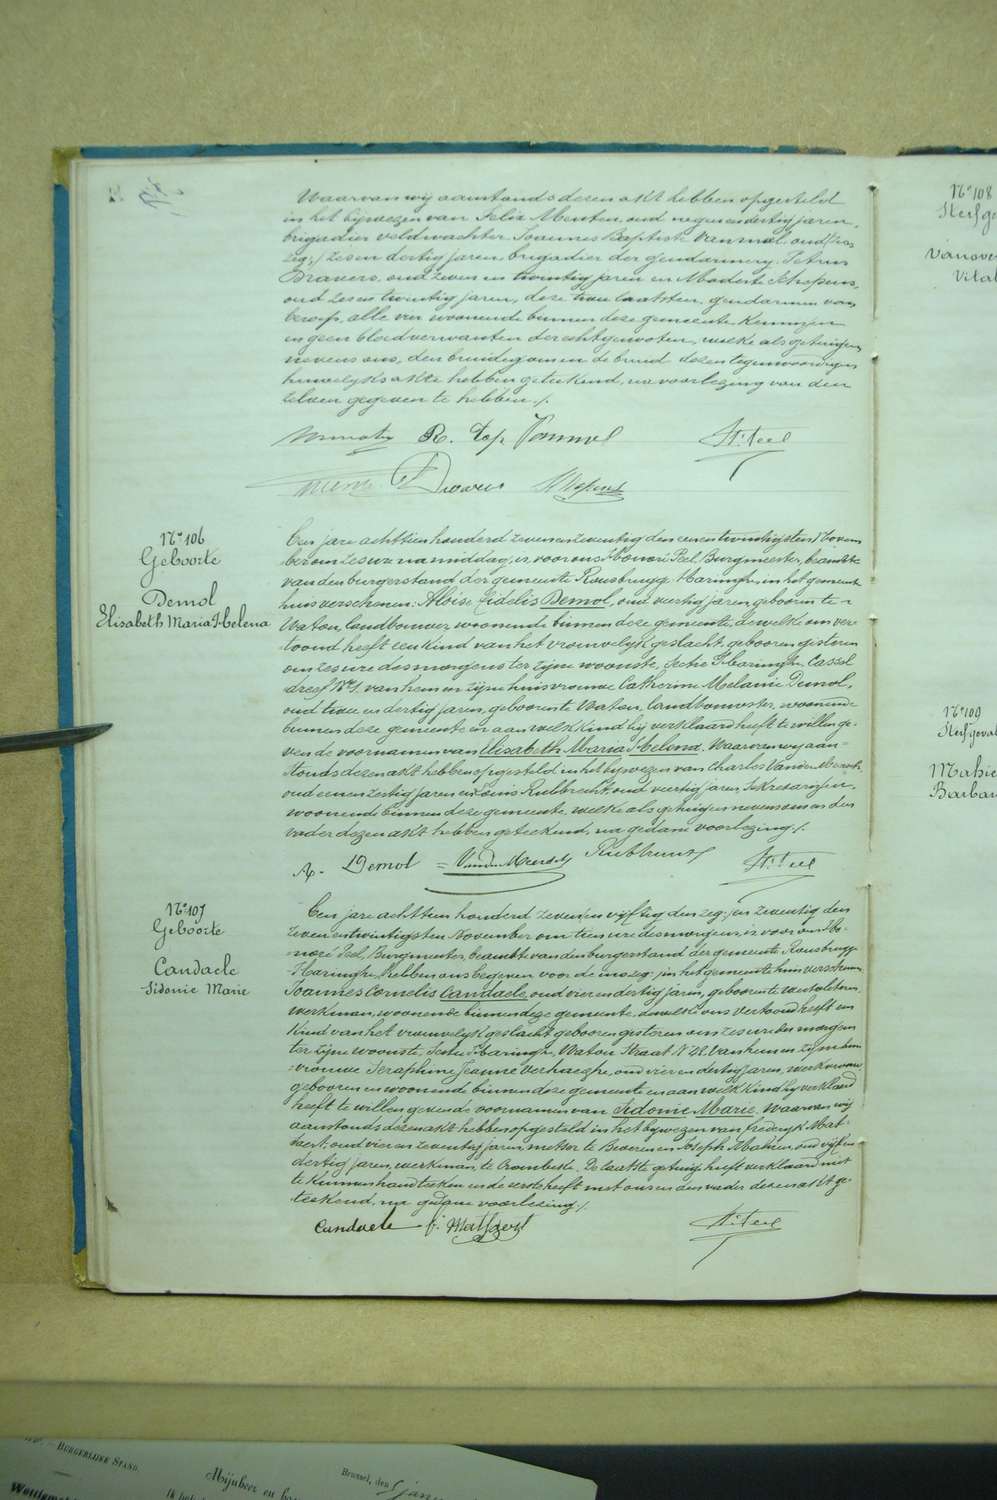 Waarvan wij aanstonds dezen akt hebben opgesteld
in het bijwezen van Felix Menten, oud negen en dertig jaren,
brigadier veldwachter Joannes Baptiste Vanmol, oud
zeg:/ zes en dertig jaren brigadier der gendarmerij, Petrus
oud zeven en twintig jaren en Modeste Schepens,
oud zes en twintig jaren, deze twee laatsten gendarmen van
beroep, alle vier woonende binnen deze gemeente, kennissen
en geen bloedverwanten der echtgenooten, welke als getuigen
nevens ons, den bruidegom en de bruid dezen tegenwoordigen
huwelijks akte hebben geteekend, na voorlezing van den
zelven gegeven te hebben./.
R. Top Vanmol H. Peel
N° 106
Geboorte
Demol
Elisabeth Maria Helena
Een jare achttien honderd zeven en zeventig den een en twintigsten Novem
ber om zes ure na middag, is voor ons Honoré Peel, Burgmeester, beambte
van den burgerstand der gemeente Rousbrugge-Haringhe, in het gemeente
huis verschenen: Aloise Fidelis Demol, oud veertig jaren, geboren te
Watou, landbouwer, woonende binnen deze gemeente, dewelke ons ver
toond heeft een kind van het vrouwelijk geslacht, geboren gisteren
om zes ure des morgens ter zijne woonste, sectie Haringhe, Cassel
dreef N° 1, van hem en zijne huisvrouwe Catherine Melanie Demol,
oud twee en dertig jaren, geboren te Watou, landbouwster, woonende
binnen deze gemeente en aan welk kind hij verklaard heeft te willen ge-
ven de voornamen van Elisabeth Maria Helena. Waarvan wij aan-
stonds dezen akt hebben opgesteld in het bijwezen van Charles Vanden
oud een en zestig jaren en Louis Rubbrecht, oud veertig jaren, sekretarissen,
woonende binnen deze gemeente, welke als getuigen nevens ons en den
vader dezen akt hebben geteekend, na gedane voorlezing./.
A. Demol Rubbrecht H. Peel
N° 107
Geboorte
Candaele
Sidonie Marie
Een jare achttien honderd zeven en vijftig den zeg: en zeventig den
zeven en twintigsten November om tien ure des morgens, is voor ons Ho-
noré Peel, Burgmeester, beambte van den burgerstand der gemeente Rousbrugge
Haringhe, hebben ons begeven voor de inzeg: in het gemeente huis verschenen
Joannes Cornelis Candaele, oud vier en dertig jaren, geboren te
werkman, woonende binnen deze gemeente, dewelke ons vertoond heeft een
kind van het vrouwelijk geslacht geboren gisteren om zes ure des morgens
ter zijne woonste, sectie Haringhe, Watou Straat N° 21, van hem en zijne huis
vrouwe Seraphine Jeanne Verhaeghe, oud vier en dertig jaren, werkvrouw
geboren en woonende binnen deze gemeente en aan welk kind hij verklaard
heeft te willen geven de voornamen van Sidonie Marie. Waarvan wij
aanstonds dezen akt hebben opgesteld in het bijwezen van Frederyk Mat-
oud vier en zeventig jaren, metser te Beveren en Joseph Mahieu, oud vijf en
dertig jaren, werkman te Crombeke. De laatste getuige heeft verklaard niet
te kunnen handteeken en de eerste heeft met ons en den vader dezen akt ge-
teekend, na gedane voorlezing./.
Candaele H. Peel
N° 108
Vanove
Vital
N° 109
Sterfgeval
Mahie
Barbar
BURGERLIJKE STAND.
Brussel, den
Mijnheer en